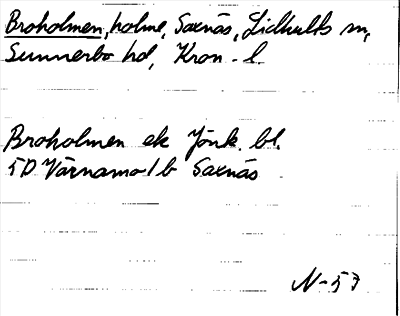 Broholmen, holme, Saxnäs, Lidhults sn,
Sunnerbo hd, Kron. l.
Broholmen ek Jönk. bl.
5D Värnamo 1 b Saxnäs
N-57